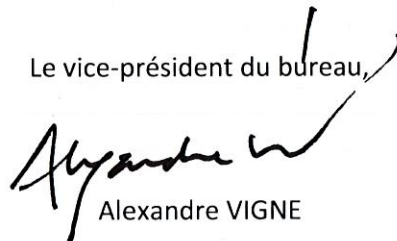 Le vice-président du bureau,
Alexandre V
Alexandre VIGNE